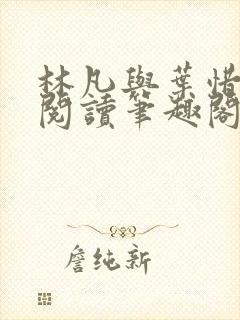 林凡與葉惜
閱讀筆趣閣
詹纯新